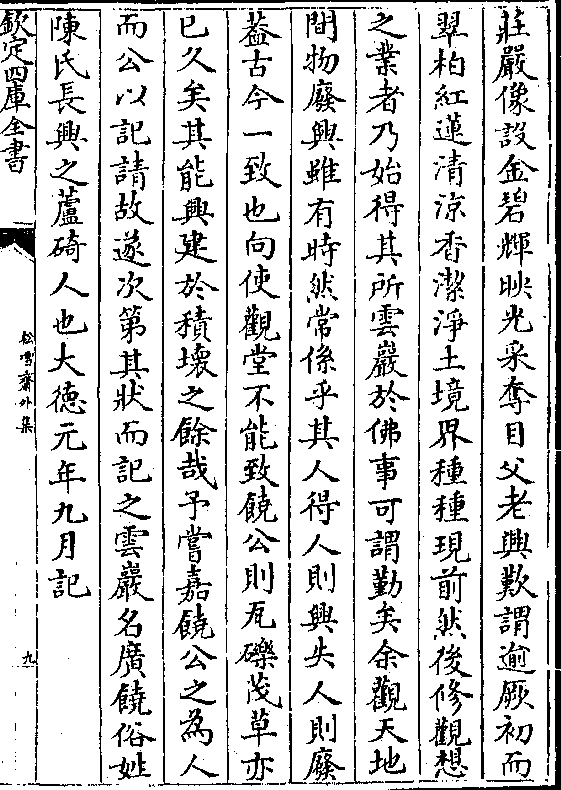 莊嚴像設金碧輝映光采奪目父老興歎謂逾厥初而
翠柏紅蓮清涼香潔淨土境界種種現前然後修觀想
之業者乃始得其所雲巖於佛事可謂勤矣余觀天地
間物廢興雖有時然常係乎其人得人則興失人則廢
葢古今一致也向使觀堂不能致饒公則瓦礫茂草亦
已久矣其能興建於積壞之餘哉予嘗嘉饒公之為人
而公以記請故遂次第其狀而記之雲巖名廣饒俗姓
陳氏長興之蘆碕人也大德元年九月記
欽定四庫全書
松雪齋外集
九